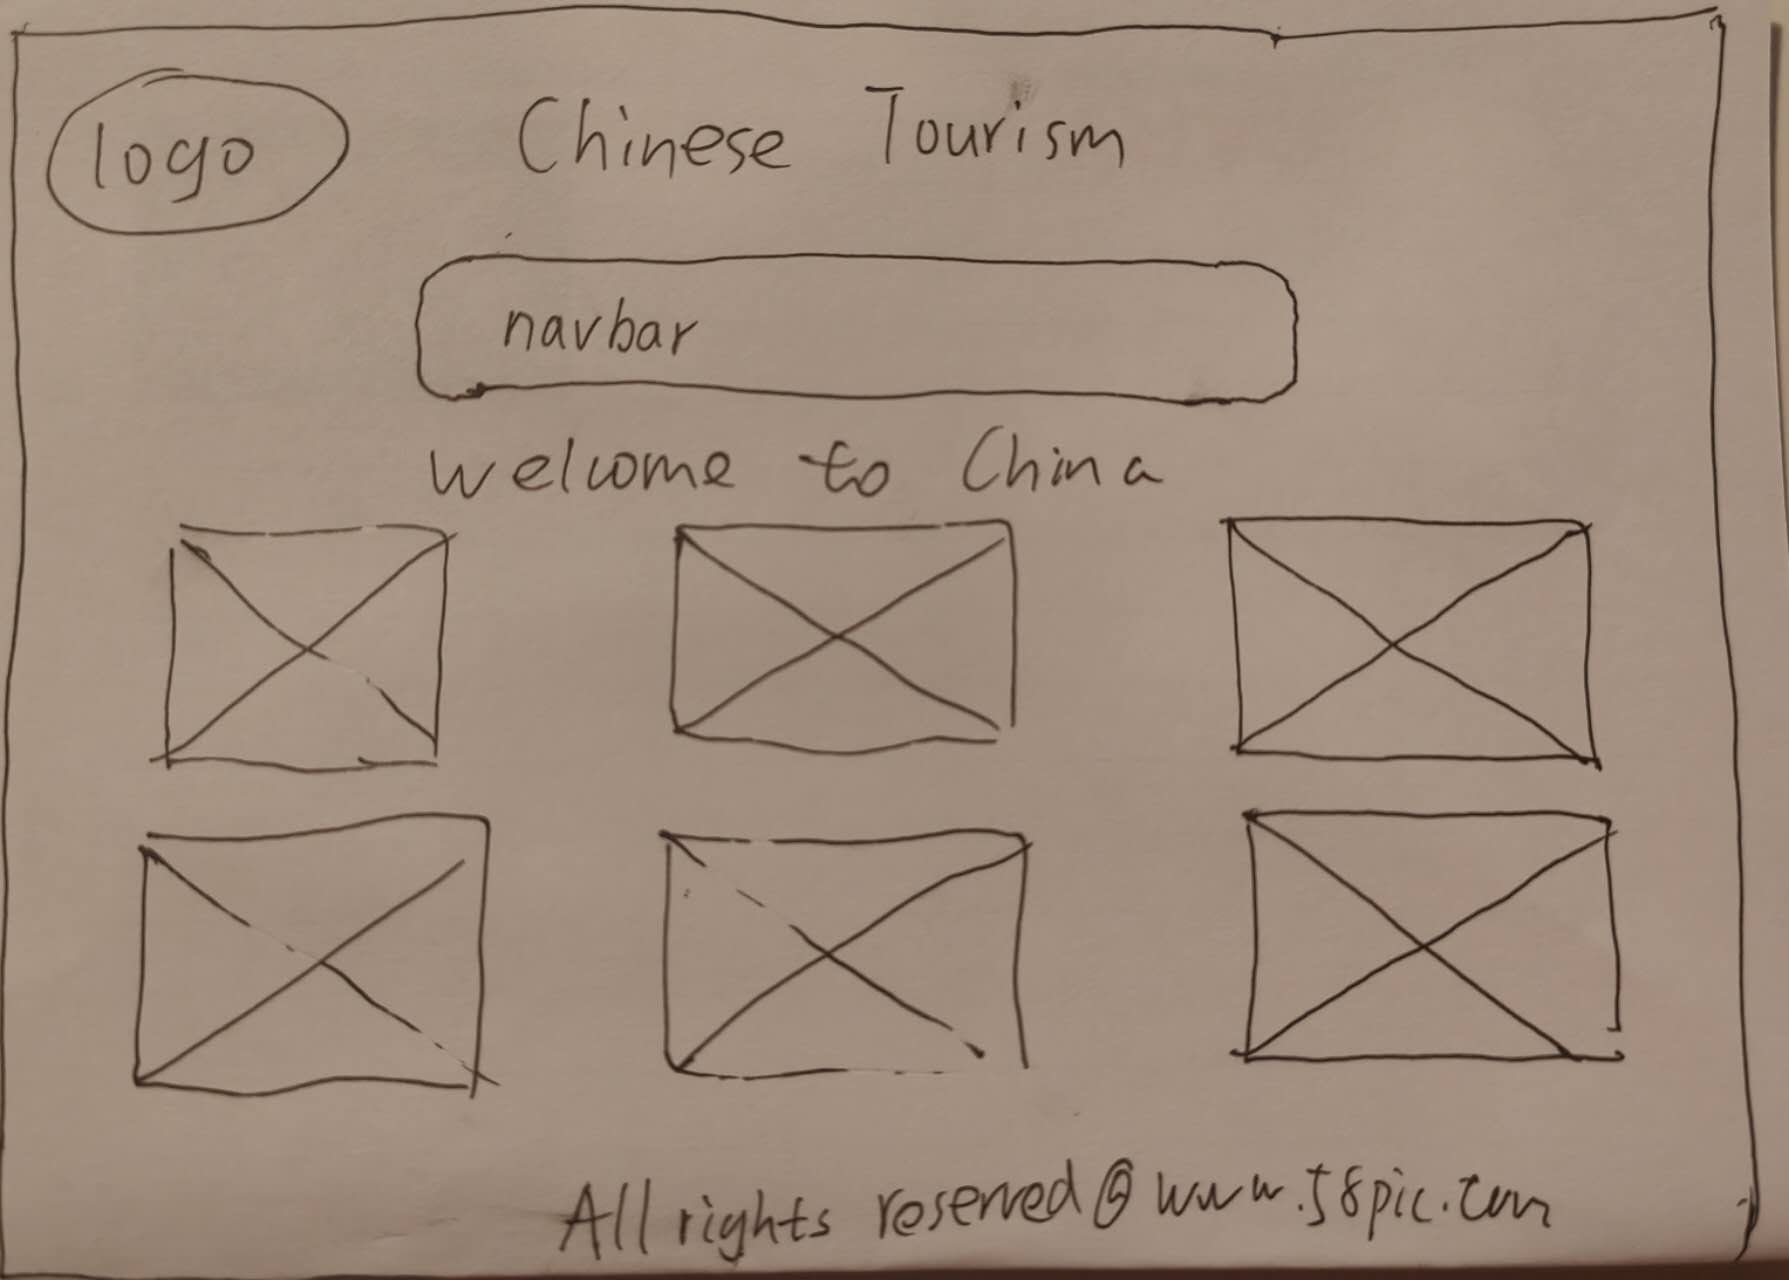 logo
Chinese Tourism
navbar
welcome to China
All rights reserved@www.58pic.com